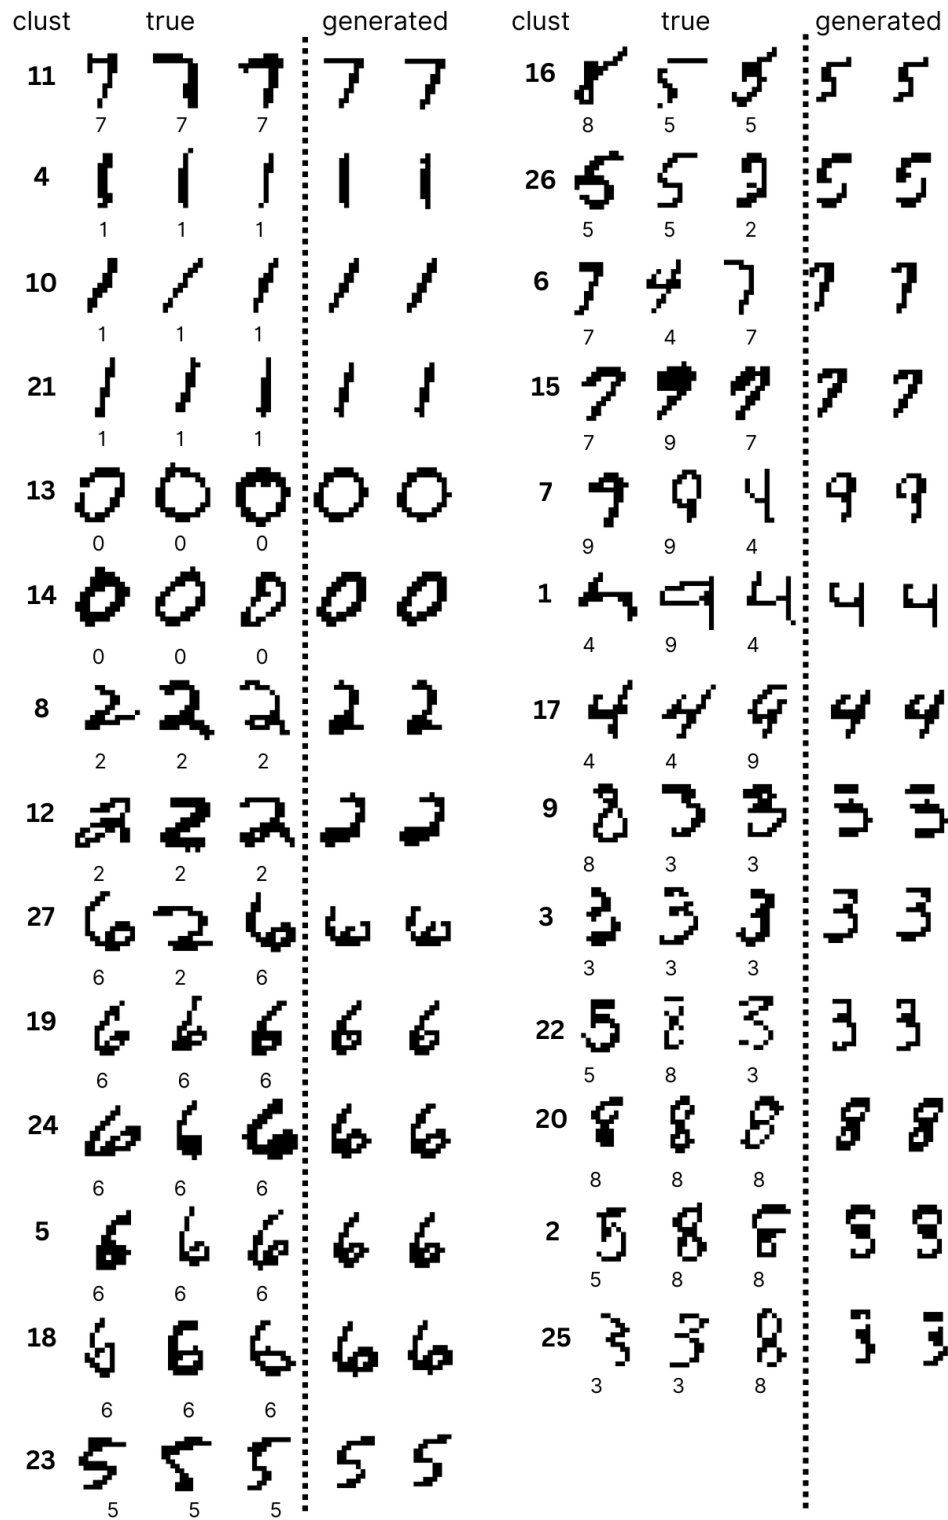 clust true generated
11
7 7 7
4
1 1 1
10
1 1 1
21
1 1 1
13
0 0 0
14
0 0 0
8
2 2 2
12
2 2 2
27
6 2 6
19
6 6 6
24
6 6 6
5
6 6 6
18
6 6 6
23
5 5 5
clust true generated
16
8 5 5
26
5 5 2
6
7 4 7
15
7 9 7
7
9 9 4
1
4 9 4
17
4 4 9
9
8 3 3
3
3 3 3
22
5 8 3
20
8 8 8
2
5 8 8
25
3 3 8